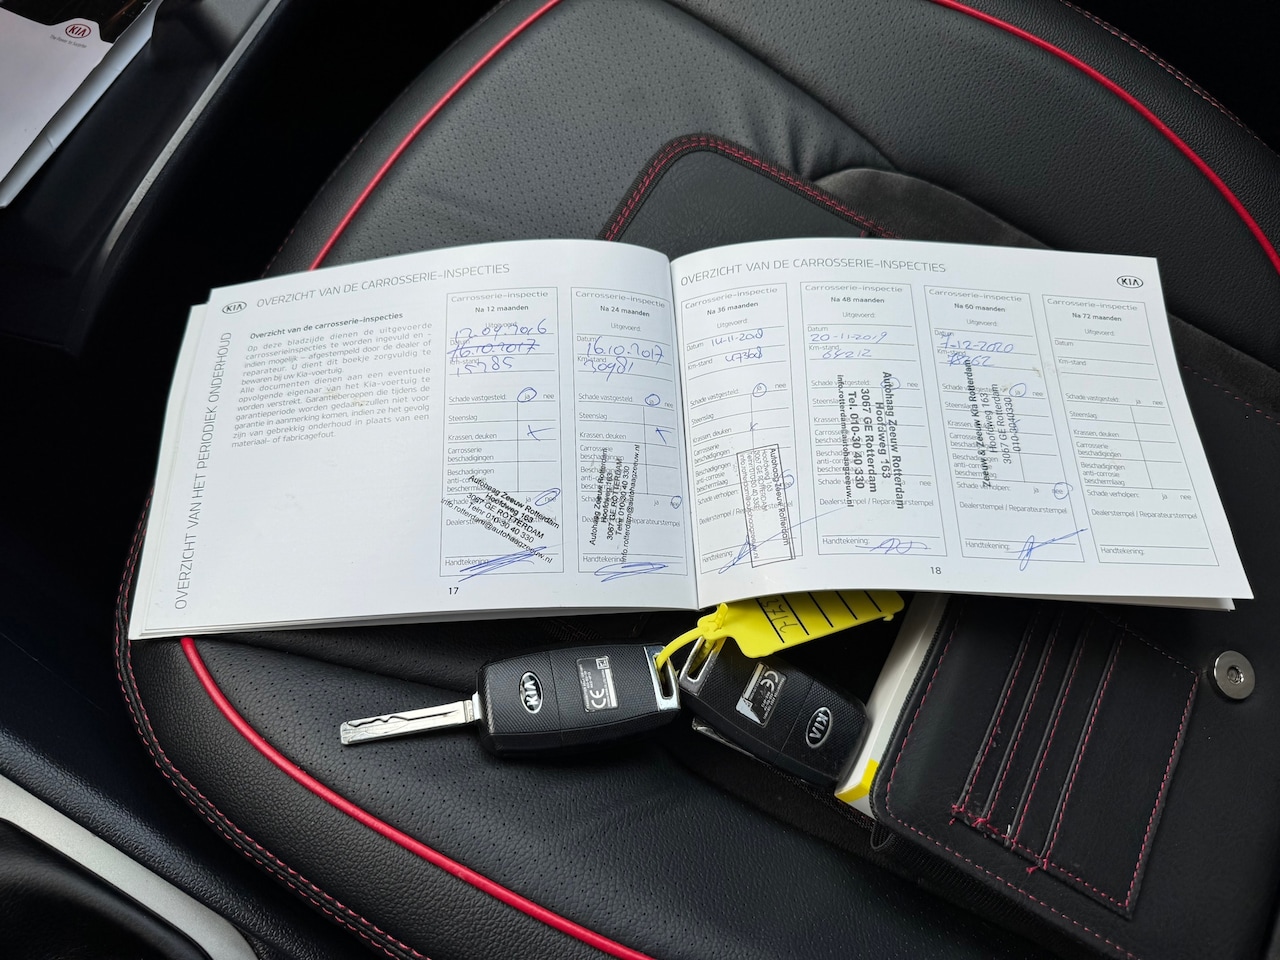 KIA
KIA
OVERZICHT VAN HET PERIODIEK ONDERHOUD
OVERZICHT VAN DE CARROSSERIE-INSPECTIES
Overzicht van de carrosserie-inspecties
Op deze bladzijde dienen de uitgevoerde
carrosserieinspecties te worden ingevuld en -
indien mogelijk – afgestempeld door de dealer of
reparateur. U dient dit boekje zorgvuldig te
bewaren bij uw Kia-voertuig.
Alle documenten dienen aan een eventuele
opvolgende eigenaar van het Kia-voertuig te
worden verstrekt. Garantieberoepen die tijdens de
garantieperiode worden gedaan, zullen niet voor
garantie in aanmerking komen, indien ze het gevolg
zijn van gebrekkig onderhoud in plaats van een
materiaal- of fabricagefout.
Carrosserie-inspectie
Na 12 maanden
Uitgevoerd:
16.10.2017
Km-stand
15785
Schade vastgesteld: ja nee
Steenslag
Krassen, deuken
Carrosserie
beschadigingen
Beschadigingen
anti-corrosie
Autohaag Zeeuw Rotterdam
Hoofdweg 163
3067 GE ROTTERDAM
Tel.nr 010-30 40 330
info.rotterdam@autohaagzeeuw.nl
Handtekening:
17
Carrosserie-inspectie
Na 24 maanden
Uitgevoerd:
Datum
16.10.2017
Km-stand
30981
Schade vastgesteld: ja nee
Steenslag
Krassen, deuken
Autohaag Zeeuw Rotterdam
Hoofdweg 163
3067 GE ROTTERDAM
Tel.nr 010-30 40 330
info.rotterdam@autohaagzeeuw.nl
Dealerstempel / Reparateurstempel
Handtekening:
OVERZICHT VAN DE CARROSSERIE-INSPECTIES
KIA
Carrosserie-inspectie
Na 36 maanden
Uitgevoerd:
Datum
14-11-2018
Km-stand
Schade vastgesteld: ja nee
Steenslag
Krassen, deuken
Carrosserie
beschadigingen
Autohaag Zeeuw Rotterdam
Schade verholpen:
Dealerstempel / Reparateurstempel
Handtekening:
Carrosserie-inspectie
Na 48 maanden
Uitgevoerd:
Datum
20-11-2019
Km-stand
64212
Schade vastgesteld:
Steenslag
Krassen, deuken
Autohaag Zeeuw Rotterdam
Hoofdweg 163
3067 GE Rotterdam
Tel. 010-30 40 330
info.rotterdam@autohaagzeeuw.nl
Dealerstempel / Reparateurstempel
Handtekening:
18
Carrosserie-inspectie
Na 60 maanden
Uitgevoerd:
Datum
7-12-2020
Km-stand
Schade vastgesteld: ja nee
Steenslag
Krassen, deuken
Zeeuw & Zeeuw Kia Rotterdam
Hoofdweg 163
3067 GE Rotterdam
010-3040330
Schade verholpen: ja nee
Dealerstempel / Reparateurstempel
Handtekening:
Carrosserie-inspectie
Na 72 maanden
Uitgevoerd:
Datum
Km-stand
Schade vastgesteld: ja nee
Steenslag
Krassen, deuken
Carrosserie
beschadigingen
Beschadigingen
anti-corrosie
beschermlaag
Schade verholpen: ja nee
Dealerstempel / Reparateurstempel
Handtekening:
KIA
CE
CE
KIA